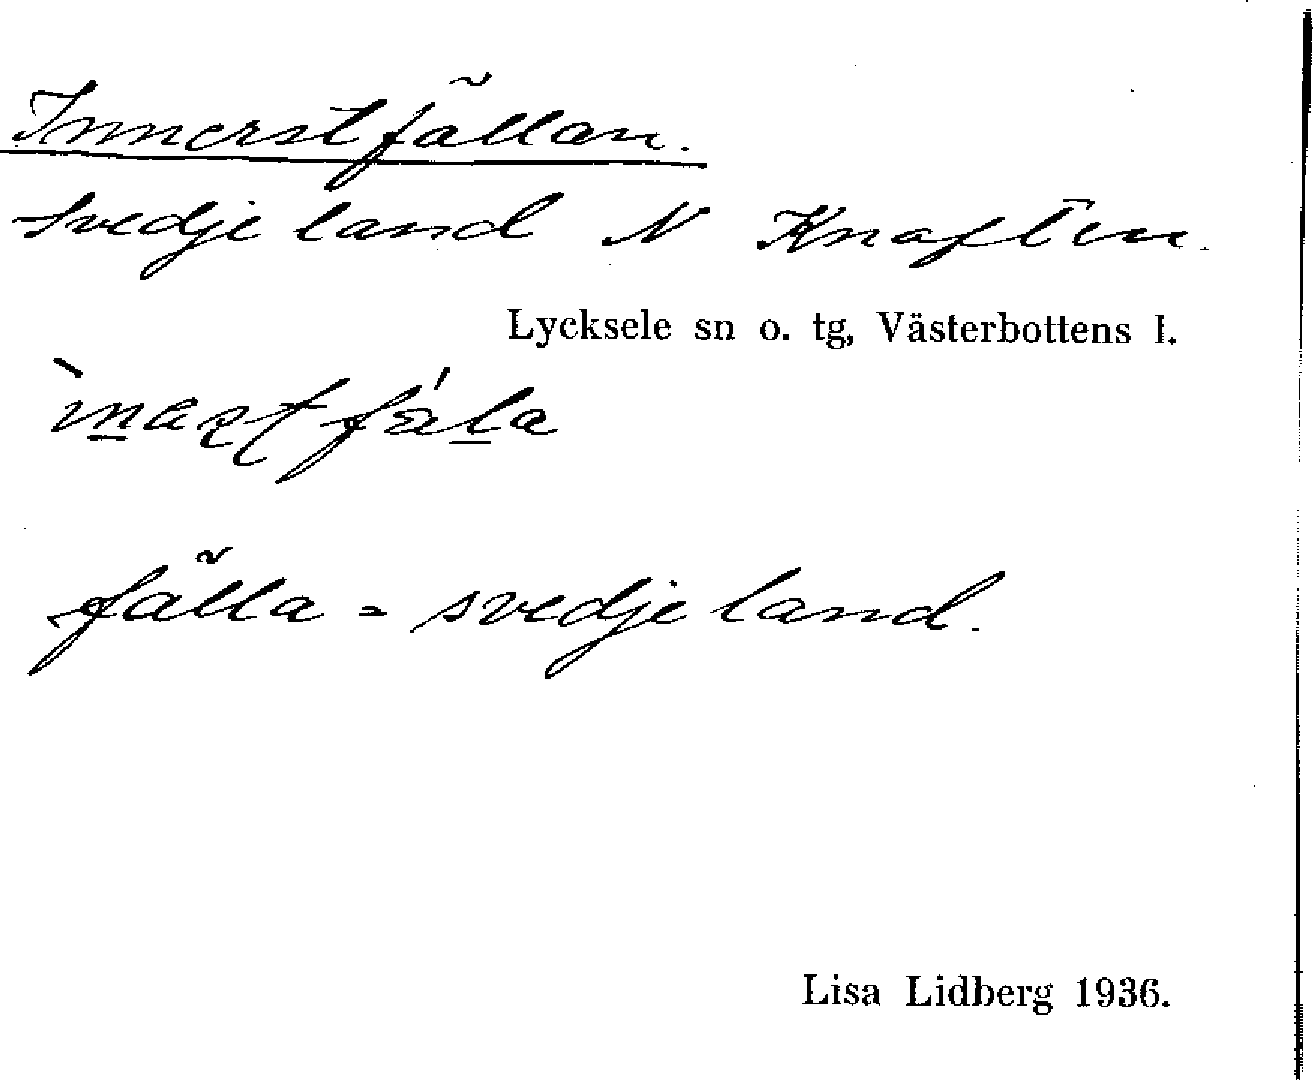 Innerstfällan.
Svedjeland N Knaften.
Lycksele sn o. tg, Västerbottens l.
fälla = svedjeland.
Lisa Lidberg 1936.